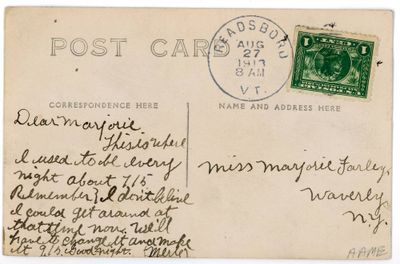 POST CARD
READSBORO
AUG
27
1913
8 AM
VT.
1
1
CORRESPONDENCE HERE
NAME AND ADDRESS HERE
Dear Marjorie.
This is where
I used to be every
night about 7/15
Remember? I don't believe
I could get around at
that time now. We'll
have to change it and make
it 9/15. Good night.
Miss Marjorie Farley,
Waverly
N.Y.
AAME